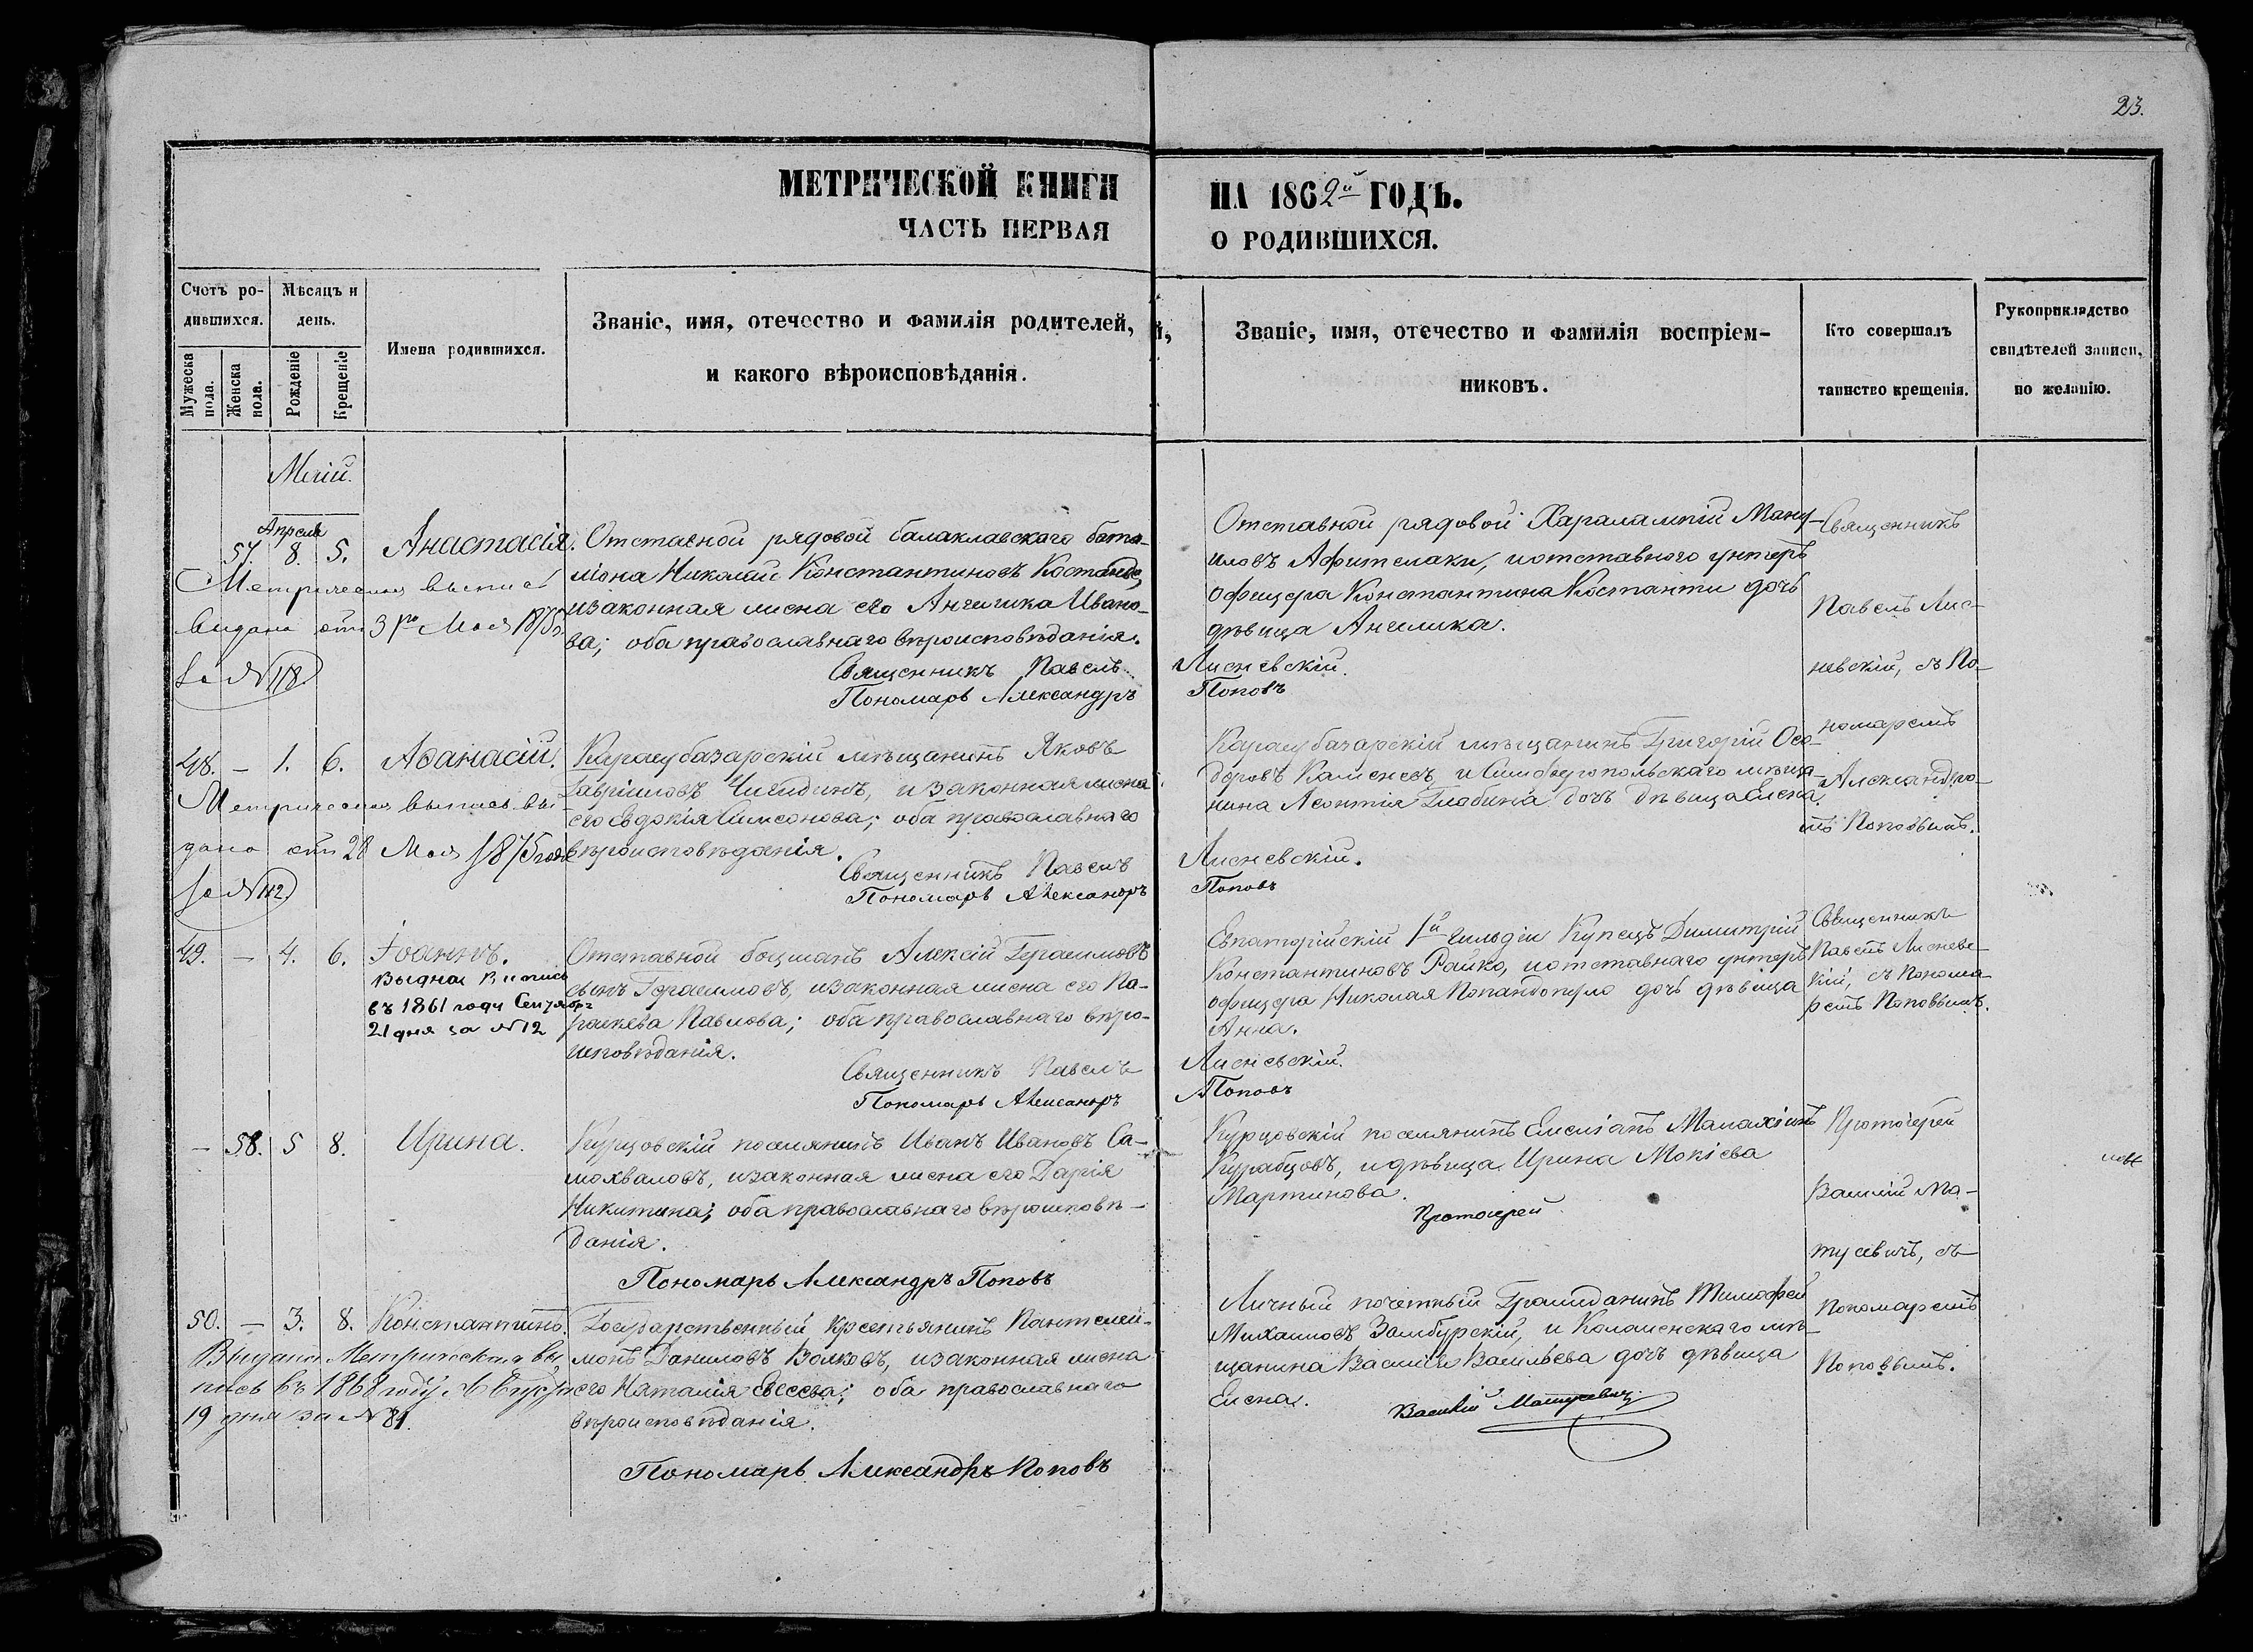 23.
МЕТРИЧЕСКОЙ КНИГИ
НА 1862й ГОДЪ.
ЧАСТЬ ПЕРВАЯ
О РОДИВШИХСЯ.
Счетъ ро-
дившихся.
Мѣсяцъ и
день.
Мужеска
пола.
Женска
пола.
Рожденіе
Крещеніе
Имена родившихся.
Званіе, имя, отечество и фамилія родителей,
и какого вѣроисповѣданія.
й,
Званіе, имя, отечество и фамилія воспріем-
никовъ.
Кто совершалъ
таинство крещенія.
Рукоприкладство
свидѣтелей записи,
по желанію.
Маій.
Апреля
57. 8. 5. Анастасія.
Метрическая выпись
выдана отъ 3го Мая 1875г.
за № 118
Отставной рядовой балаклавскаго бата-
ліона Николай Константиновъ Костанда,
и законная жена его Ангелика Ивано-
ва; оба православнаго вѣроисповѣданія.
Священникъ Павелъ
Лисневскій.
Пономарь Александръ
Поповъ
Отставной рядовой Харалампій Ману-
иловъ Афителаки, и отставного унтеръ
офицера Константина Костанти дочь
дѣвица Ангелика.
Священникъ
Павелъ Лис-
невскій, съ По-
номаремъ
Александро-
мъ Поповымъ.
48. — 1. 6. Аѳанасій.
Метрическая выпись вы-
дана отъ 28 Мая 1875 года
за № 112
Карасубазарскій мѣщанинъ Яковъ
Гавріиловъ, и законная жена
его Евдокія Симеонова; оба православнаго
вѣроисповѣданія.
Священникъ Павелъ
Лисневскій.
Пономарь Александръ
Поповъ
Карасубазарскій мѣщанинъ Григорій Ѳео-
доровъ Каменевъ, и Симферопольскаго мѣща-
нина Леонтія Глабина дочь дѣвица Елена.
49. — 4. 6. Іоаннъ.
Выдна Выпись
въ 1861 году Сентября
21 дня за № 12
Отставной боцманъ Алексій Герасимовъ
сынъ Герасимовъ, и законная жена его Па-
раскева Павлова; оба православнаго вѣро-
исповѣданія.
Священникъ Павелъ
Лисневскій.
Пономарь Александръ
Поповъ
Евпаторійскій 1й гильдіи Купецъ Димитрій
Константиновъ Райко, и отставнаго унтеръ
офицера Николая Попандопуло дочь дѣвица
Анна.
Священникъ
Павелъ Лисневс-
кій, съ Понома-
ремъ Поповымъ.
— 58. 5 8. Ирина.
Курцовскій поселянинъ Иванъ Ивановъ Са-
мохваловъ, и законная жена его Дарія
Никитина; оба православнаго вѣроисповѣ-
данія.
Пономарь Александръ Поповъ
Курцовскій поселянинъ Емеліанъ Малахіинъ
Курабцовъ, и дѣвица Ирина Мокіева
Мартинова.
Протоіерей
Протоіерей
Василій Ма-
тусевичъ, съ
Пономаремъ
Поповымъ.
50. — 3. 8. Константинъ.
Выдана Метрическая вы-
пись въ 1868 году Августа
19 дня за № 81.
Государственный крестьянинъ Пантелей-
монъ Даниловъ Волковъ, и законная жена
его Наталія Евсеева; оба православнаго
вѣроисповѣданія.
Пономарь Александръ Поповъ
Личный почетный Гражданинъ Тимофей
Михаиловъ Замбурскій, и Коломенскаго мѣ-
щанина Василія Васильева дочь дѣвица
Елена.
Василій Матусевичъ